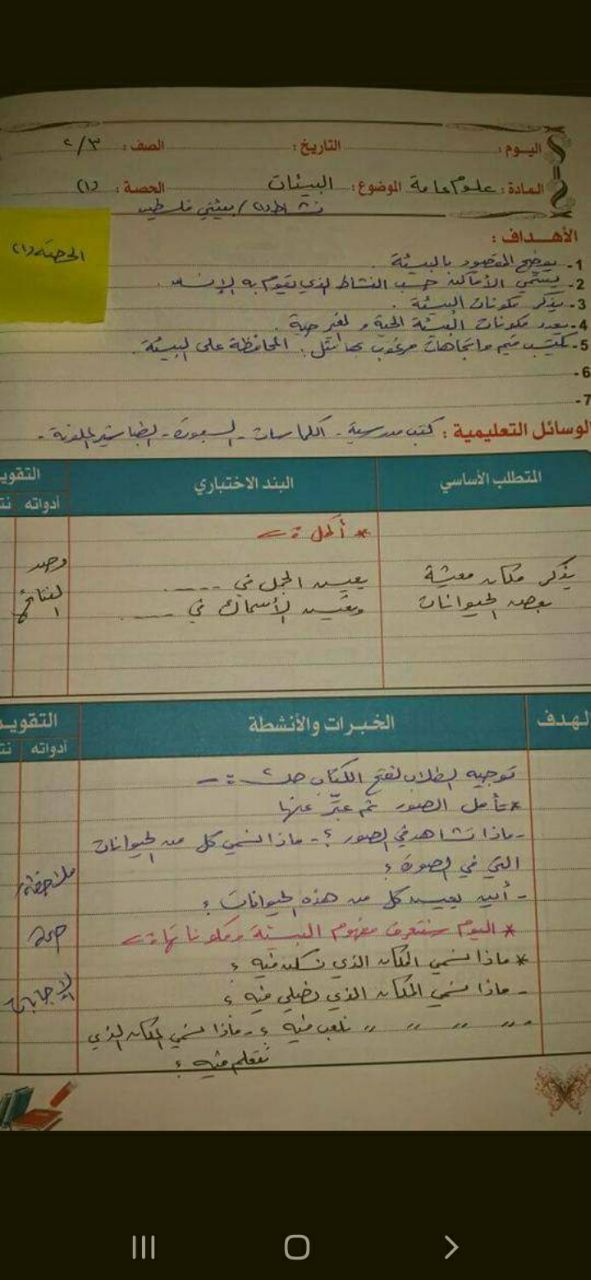 اليوم: التاريخ: الصف: ٢/٣
المادة: علوم عامة الموضوع: البيئات الحصة: (١)
نشاط (١) / بيئتي فلسطين
الحصة (١)
الأهداف:
1- يوضح المقصود بالبيئة.
2- يسمي الأماكن حسب النشاط الذي يقوم به الإنسان.
3- يذكر مكونات البيئة.
4- يعدد مكونات البيئة الحية والغير حية.
5- يكتسب قيم واتجاهات مرغوب بها مثل: المحافظة على البيئة.
6-
7-
الوسائل التعليمية: كتب مدرسية - الكراسات - السبورة - الطباشير الملونة -
المتطلب الأساسي البند الاختباري التقوي
أدواته نت
* أكمل :-
يذكر مكان معيشة يعيش الجمل في ..... رصد
بعض الحيوانات وتعيش الأسماك في ..... النتائج
الهدف الخبرات والأنشطة التقويـ
أدواته نت
توجيه الطلاب لفتح الكتاب ص٢ :-
* تأمل الصور ثم عبّر عنها
- ماذا تشاهد في الصور؟ - ماذا نسمي كل من الحيوانات
التي في الصورة؟ ملاحظة
- أين يعيش كل من هذه الحيوانات؟
* اليوم سنتعرف مفهوم البيئة ومكوناتها :- صحة
* ماذا نسمي المكان الذي نسكن فيه؟
- ماذا نسمي المكان الذي نصلي فيه؟ الإجابات
- ,, ,, ,, ,, نلعب فيه؟ - ماذا نسمي المكان الذي
نتعلم فيه؟